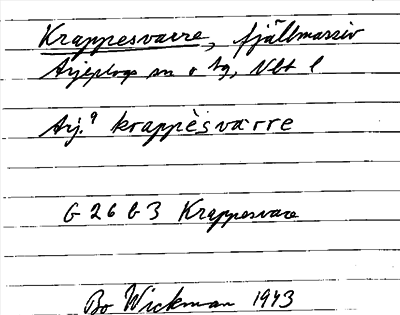 Krappesvarre, fjällmassiv
Arjeplogs sn o tg, Nbt l
Arj.⁹ krappèsvàrre
G 26 G 3 Krappesvare
Bo Wickman 1943